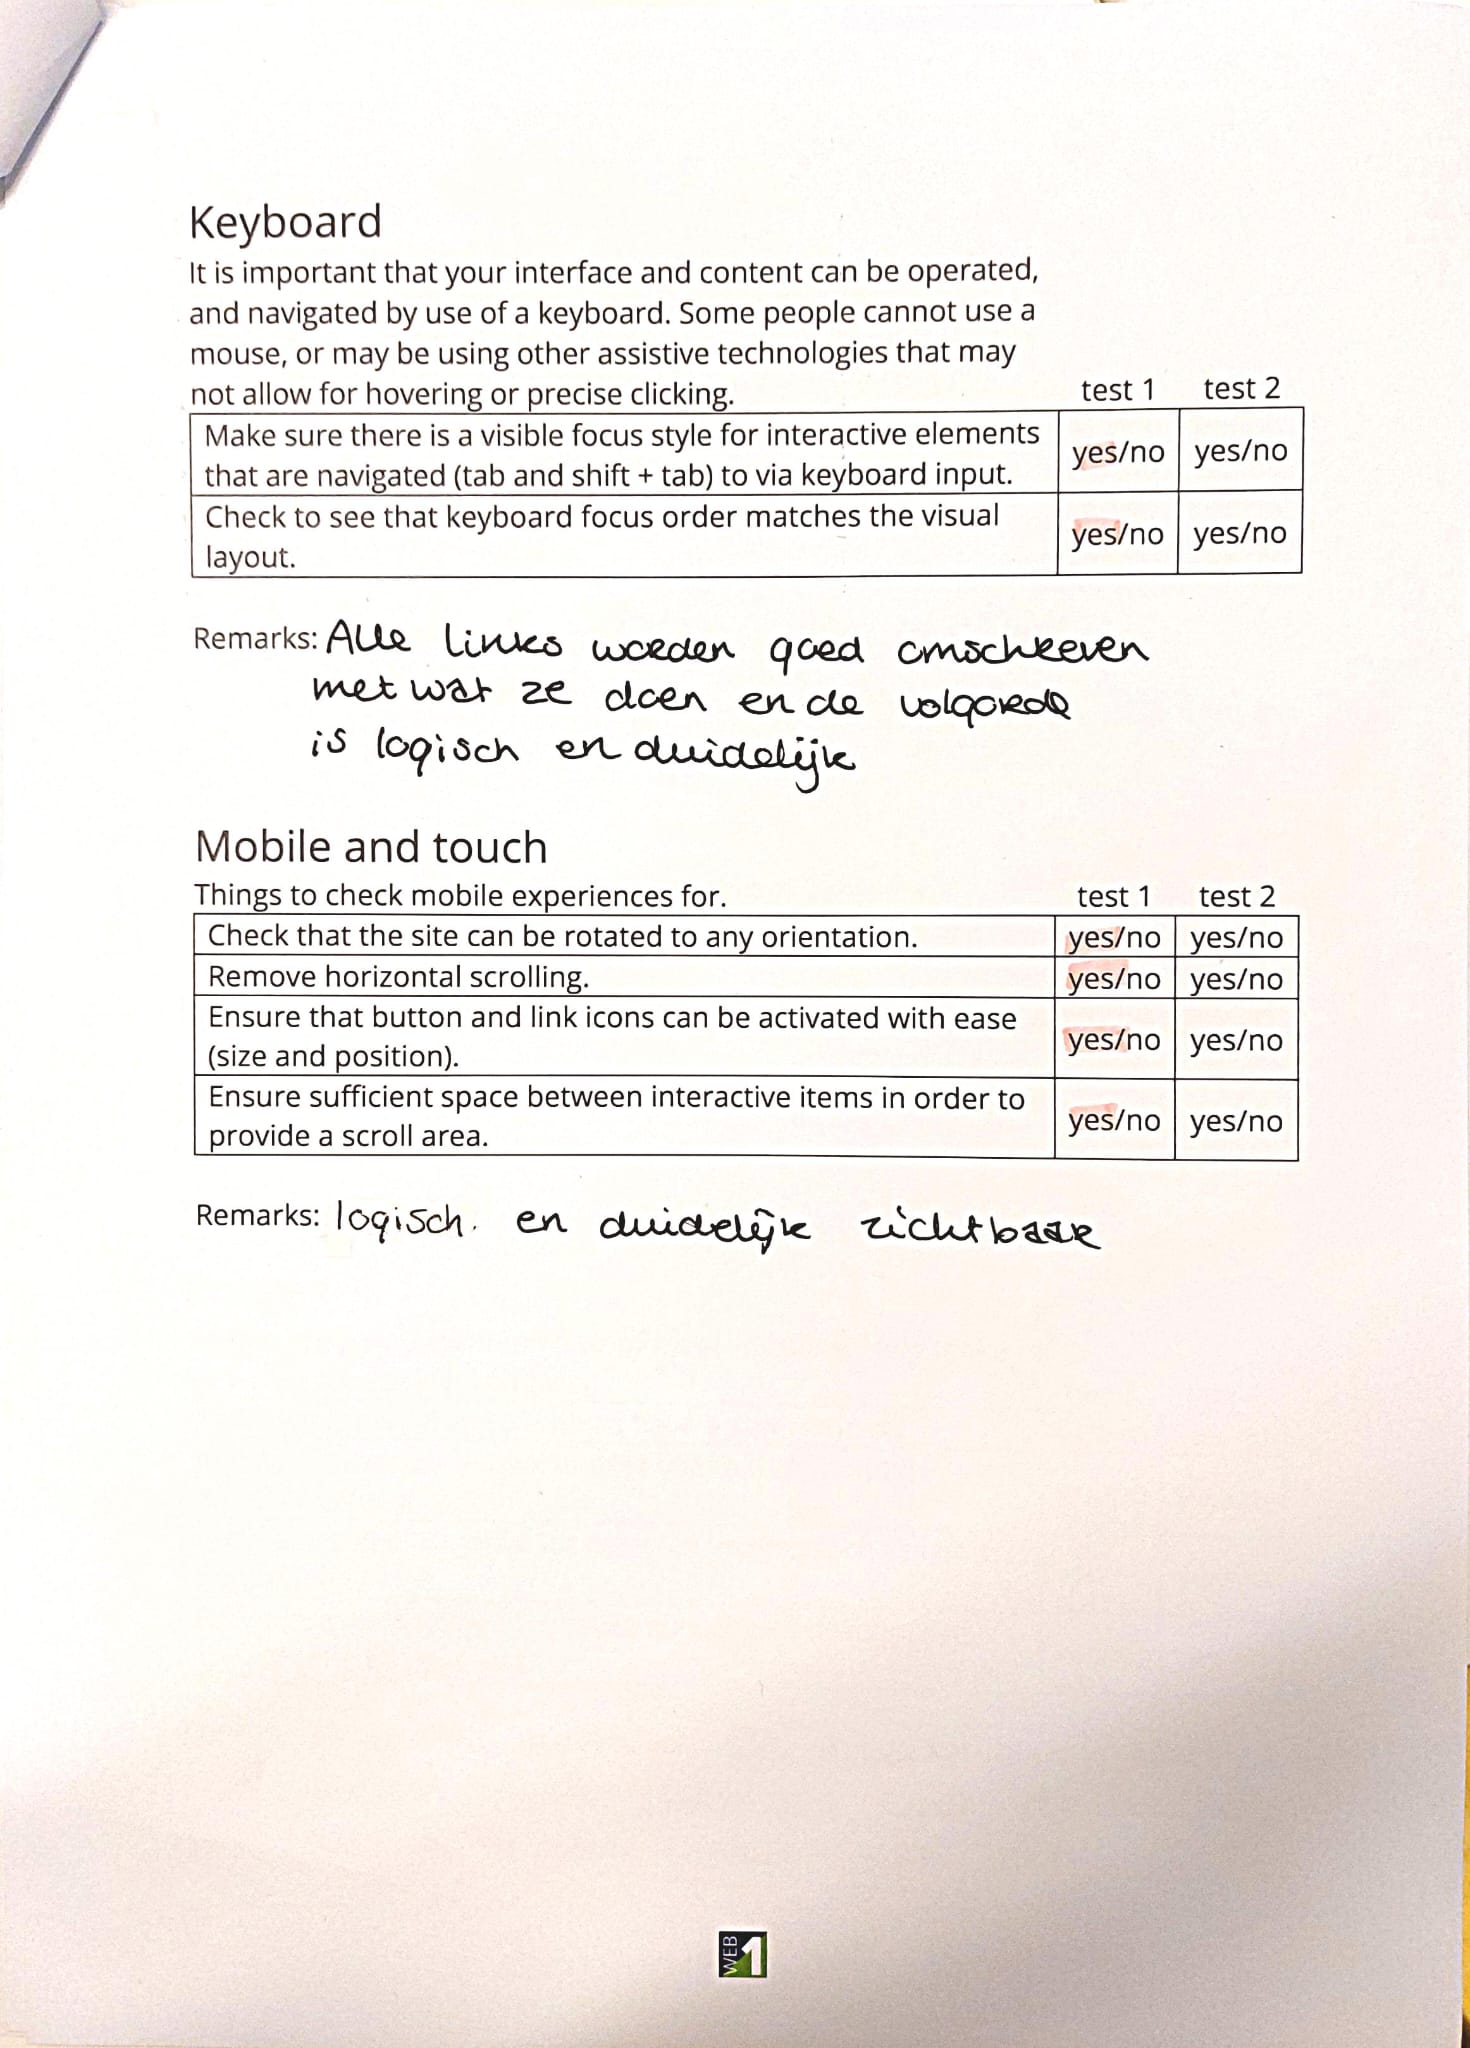 Keyboard
It is important that your interface and content can be operated,
and navigated by use of a keyboard. Some people cannot use a
mouse, or may be using other assistive technologies that may
not allow for hovering or precise clicking. test 1 test 2
Make sure there is a visible focus style for interactive elements
that are navigated (tab and shift + tab) to via keyboard input. yes/no yes/no
Check to see that keyboard focus order matches the visual
layout. yes/no yes/no
Remarks: Alle links worden goed omschreven
met wat ze doen en de volgorde
is logisch en duidelijk
Mobile and touch
Things to check mobile experiences for. test 1 test 2
Check that the site can be rotated to any orientation. yes/no yes/no
Remove horizontal scrolling. yes/no yes/no
Ensure that button and link icons can be activated with ease
(size and position). yes/no yes/no
Ensure sufficient space between interactive items in order to
provide a scroll area. yes/no yes/no
Remarks: logisch. en duidelijk zichtbaar
WEB 1